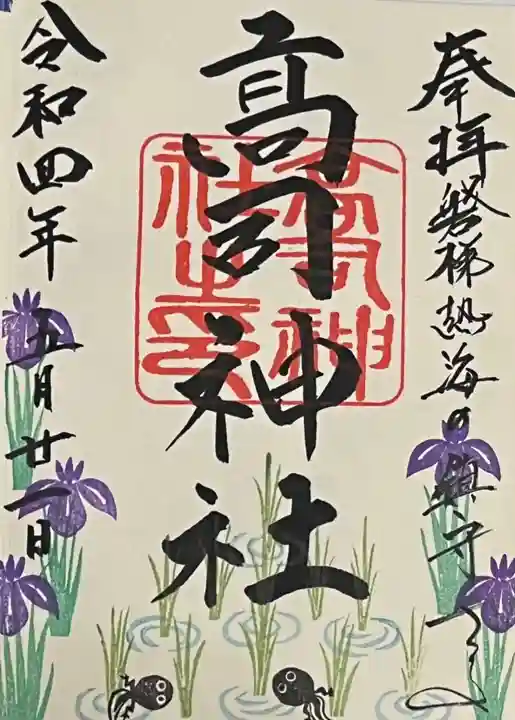 奉拝 磐梯熱海の鎮守
高司神社
高司神社之印
令和四年 五月廿一日